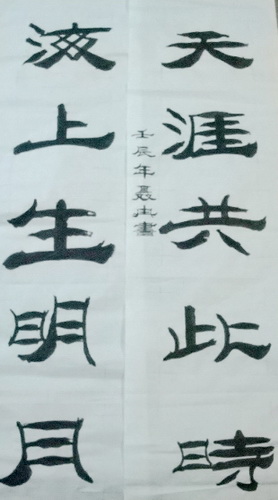 天涯共此時
壬辰年聶書
海上生明月